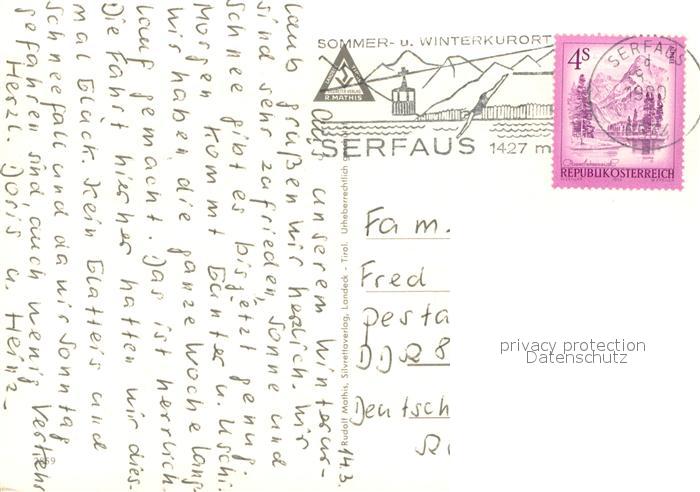 14.3.
Aus unserem Winterur-
laub grüßen wir herzlich. Wir
sind sehr zufrieden, Sonne und
Schnee gibt es bis jetzt genug.
Morgen kommt Günter u. Uschi.
Wir haben die ganze Woche Lang-
lauf gemacht. Das ist herrlich.
Die Fahrt hierher hatten wir dies-
mal Glück kein Glatteis und
Schneefall und da wir Sonntag
gefahren sind, auch wenig Verkehr
Herzl. Doris u. Heinz.
SOMMER- u. WINTERKURORT
R. MATHIS
SERFAUS 1427 m
SERFAUS
1980
4S
REPUBLIK ÖSTERREICH
Rudolf Mathis, Silvrettaverlag, Landeck - Tirol. Urheberrechtlich
Fam.
Fred
Pesta
DDR 8
Deutsch
privacy protection
Datenschutz